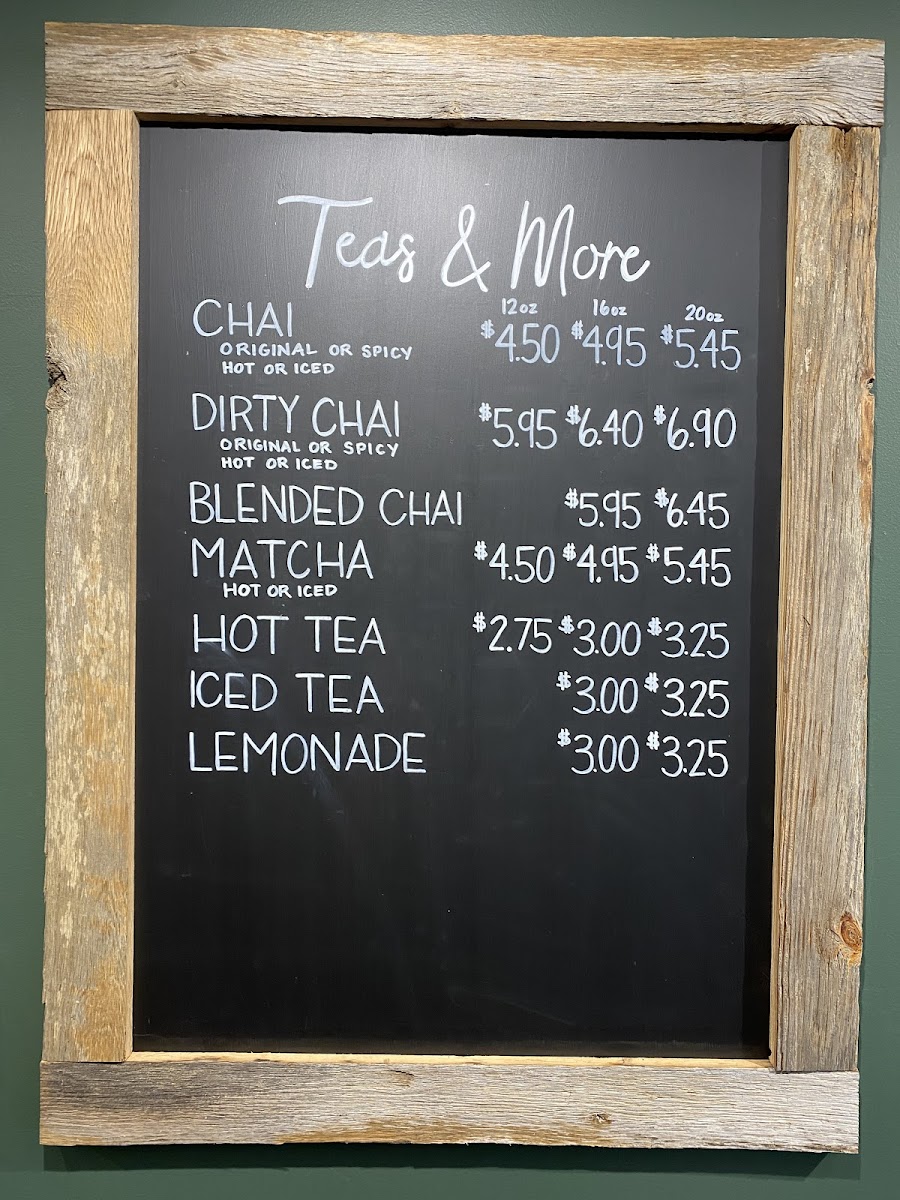 Teas & More
12oz 16oz 20oz
CHAI $4.50 $4.95 $5.45
ORIGINAL OR SPICY
HOT OR ICED
DIRTY CHAI $5.95 $6.40 $6.90
ORIGINAL OR SPICY
HOT OR ICED
BLENDED CHAI $5.95 $6.45
MATCHA $4.50 $4.95 $5.45
HOT OR ICED
HOT TEA $2.75 $3.00 $3.25
ICED TEA $3.00 $3.25
LEMONADE $3.00 $3.25